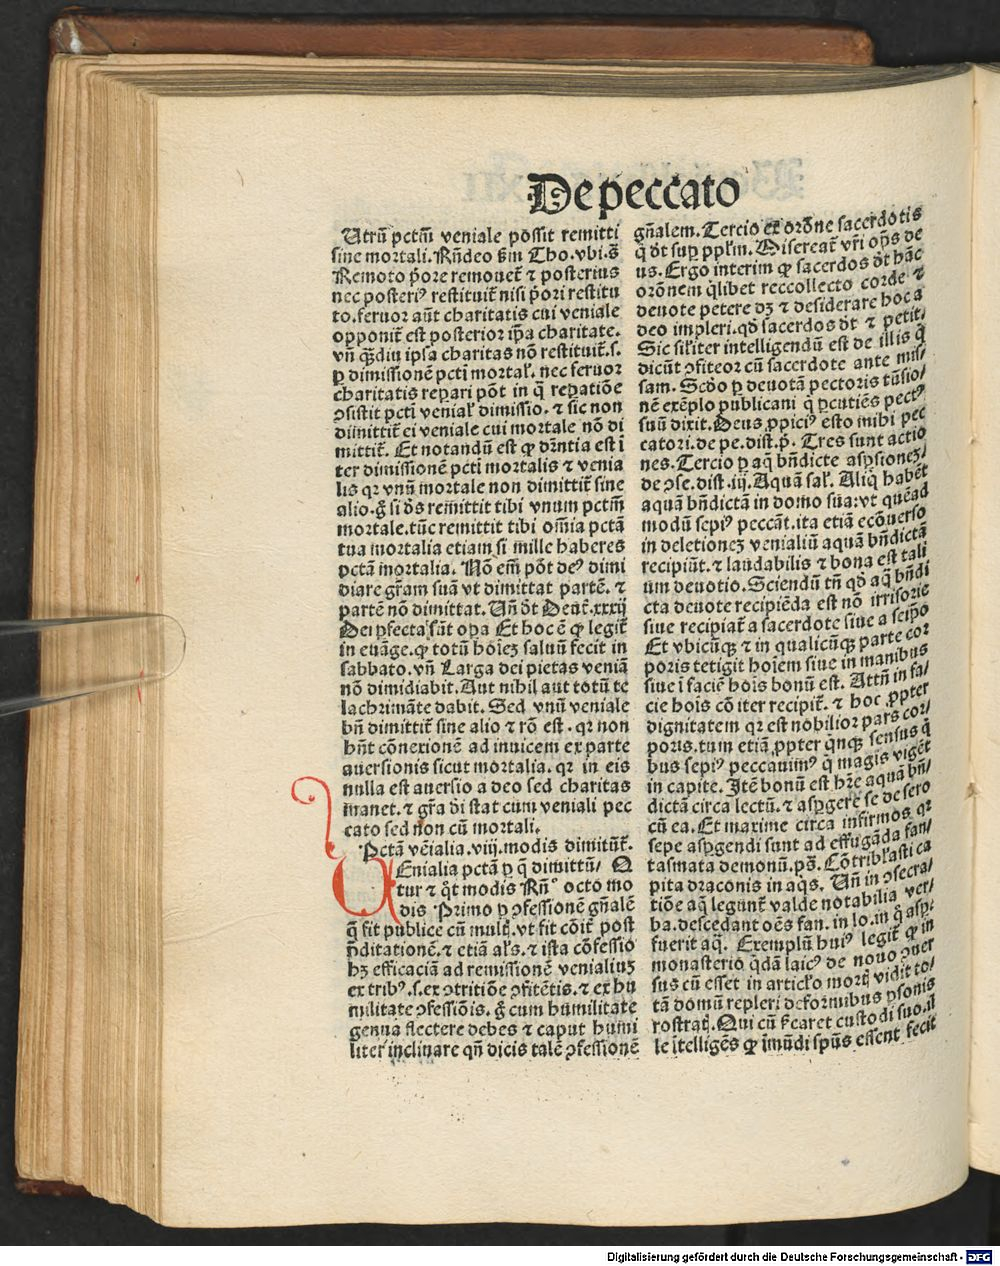 De peccato
Utrū pctm̄ veniale possit remitti
sine mortali. Rn̄deo s̄m Tho. vbi. s̄
Remoto p̄ore remouet̄ ⁊ posterius
nec posteriꝰ restituit̄ nisi p̄ori restitu
to. feruor aūt charitatis cui veniale
opponit̄ est posterior ip̄a charitate.
vn̄ qᷓ̄diu ipsa charitas nō restituit̄. s.
ꝑ dimissionē pctī mortaƚ. nec feruor
charitatis reꝑari pōt in q̄ reꝑatiōe
ꝯsistit pctī veniaƚ dimissio. ⁊ sic non
dimittit̄ ei veniale cui mortale nō di
mittit̄. Et notandū est ꝙ dr̄ntia est ī
ter dimissionē pctī mortalis ⁊ venia
lis qꝛ vnū mortale non dimittit̄ sine
alio. g̊ si dn̄s remittit tibi vnum pctm̄
mortale. tūc remittit tibi om̄ia pctā
tua mortalia etiam si mille haberes
pctā mortalia. Nō em̄ pōt deꝰ dimi
diare gr̄am suā vt dimittat partē. ⁊
partē nō dimittat. Un̄ d̄t Deut̄. xxxij
Dei ꝑfecta sūt oꝑa Et hoc ē ꝙ legit̄
in euāge. ꝙ totū hoīeꝫ saluū fecit in
sabbato. vn̄ Larga dei pietas veniā
nō dimidiabit. Aut nihil aut totū te
lachrimāte dabit. Sed vnū veniale
bn̄ dimittit̄ sine alio ⁊ rō est. qꝛ non
hn̄t cōnexionē ad inuicem ex parte
auersionis sicut mortalia. qꝛ in eis
nulla est auersio a deo sed charitas
manet. ⁊ gr̄a dei stat cum veniali pec
cato sed non cū mortali.
Pctā vēialia. viij. modis dimitūt̄.
UEnialia pctā ꝑ q̄ dimittū/ Q
tur ⁊ q̊t modis Rn̄° octo mo
dis Primo ꝑ ꝯfessionē gn̄alē
q̄ fit publice cū multꝭ. vt fit cōit̄ post
p̄ditationē. ⁊ etiā aƚs. ⁊ ista cōfessio
hꝫ efficaciā ad remissionē venialiuꝫ
ex tribꝰ. s. ex ꝯtritiōe ꝯfitētis. ⁊ ex hu
militate ꝯfessiōis. g̊ cum humilitate
genua flectere debes ⁊ caput humi
liter inclinare qn̄ dicis talē ꝯfessionē
gn̄alem. Tercio ex orōne sacerdotis
q̄ d̄t suꝑ ppƚm. Misereat̄ vr̄i op̄s de
us. Ergo interim ꝙ sacerdos d̄t hāc
orōnem qƚibet reccollecto corde ⁊
deuote petere dꝫ ⁊ desiderare hoc a
deo impleri. qd̄ sacerdos d̄t ⁊ petit/
Sic siƚiter intelligendū est de illis q̄
dicūt ꝯfiteor cū sacerdote ante mis/
sam. Scd̄o ꝑ deuotā pectoris tūsio/
nē exēplo publicani q̄ ꝑcutiēs pectꝰ
suū dixit. Deus ꝓpiciꝰ esto mihi pec
catori. de pe. dist. p̄. Tres sunt actio
nes. Tercio ꝑ aq̄ bn̄dicte asꝑsioneꝫ/
de ꝯse. dist. iij. Aquā saƚ. Aliq̄ habēt
aquā bn̄dictā in domo sua: vt quēad
modū sepiꝰ peccāt. ita etiā ecōuerso
in deletioneꝫ venialiū aquā bn̄dictā
recipiūt. ⁊ laudabilis ⁊ bona est tali
um deuotio. Sciendū tn̄ qd̄ aq̄ bn̄di
cta deuote recipiēda est nō irrisorie
siue recipiat̄ a sacerdote siue a seipō
Et vbicūqꝫ ⁊ in qualicūqꝫ parte cor
poris tetigit hoīem siue in manibus
siue ī faciē hoīs bonū est. Attn̄ in fa/
cie hoīs cōiter recipit̄. ⁊ hoc ꝓpter
dignitatem qꝛ est nobilior pars cor/
poris. tum etiā ꝓpter qnqꝫ sensus q̄
bus sepiꝰ peccauimꝰ q̄ magis vigēt
in capite. Itē bonū est hr̄e aquā bn̄/
dictā circa lectū. ⁊ asꝑgere se de sero
cū ea. Et maxime circa infirmos qꝛ
sepe asꝑgendi sunt ad effugāda fan/
tasmata demonū. ps̄. Cōtribƚasti ca
pita draconis in aq̄s. Un̄ in ꝯsecra/
tiōe aq̄ legunt̄ valde notabilia ver/
ba. descedant oēs fan. in lo. in q̄ asꝑ/
fuerit aq̄. Exemplū huiꝰ legit̄ ꝙ in
monasterio q̄dā laicꝰ de nouo ꝯuer
sus cū esset in articƚo mortꝭ vidit to/
tā domū repleri deformibus ꝑsonis
rostratꝭ. Qui cū ƚcaret custodi suo. il
le ītelligēs ꝙ īmūdi sp̄us essent fecit
Digitalisierung gefördert durch die Deutsche Forschungsgemeinschaft - DFG